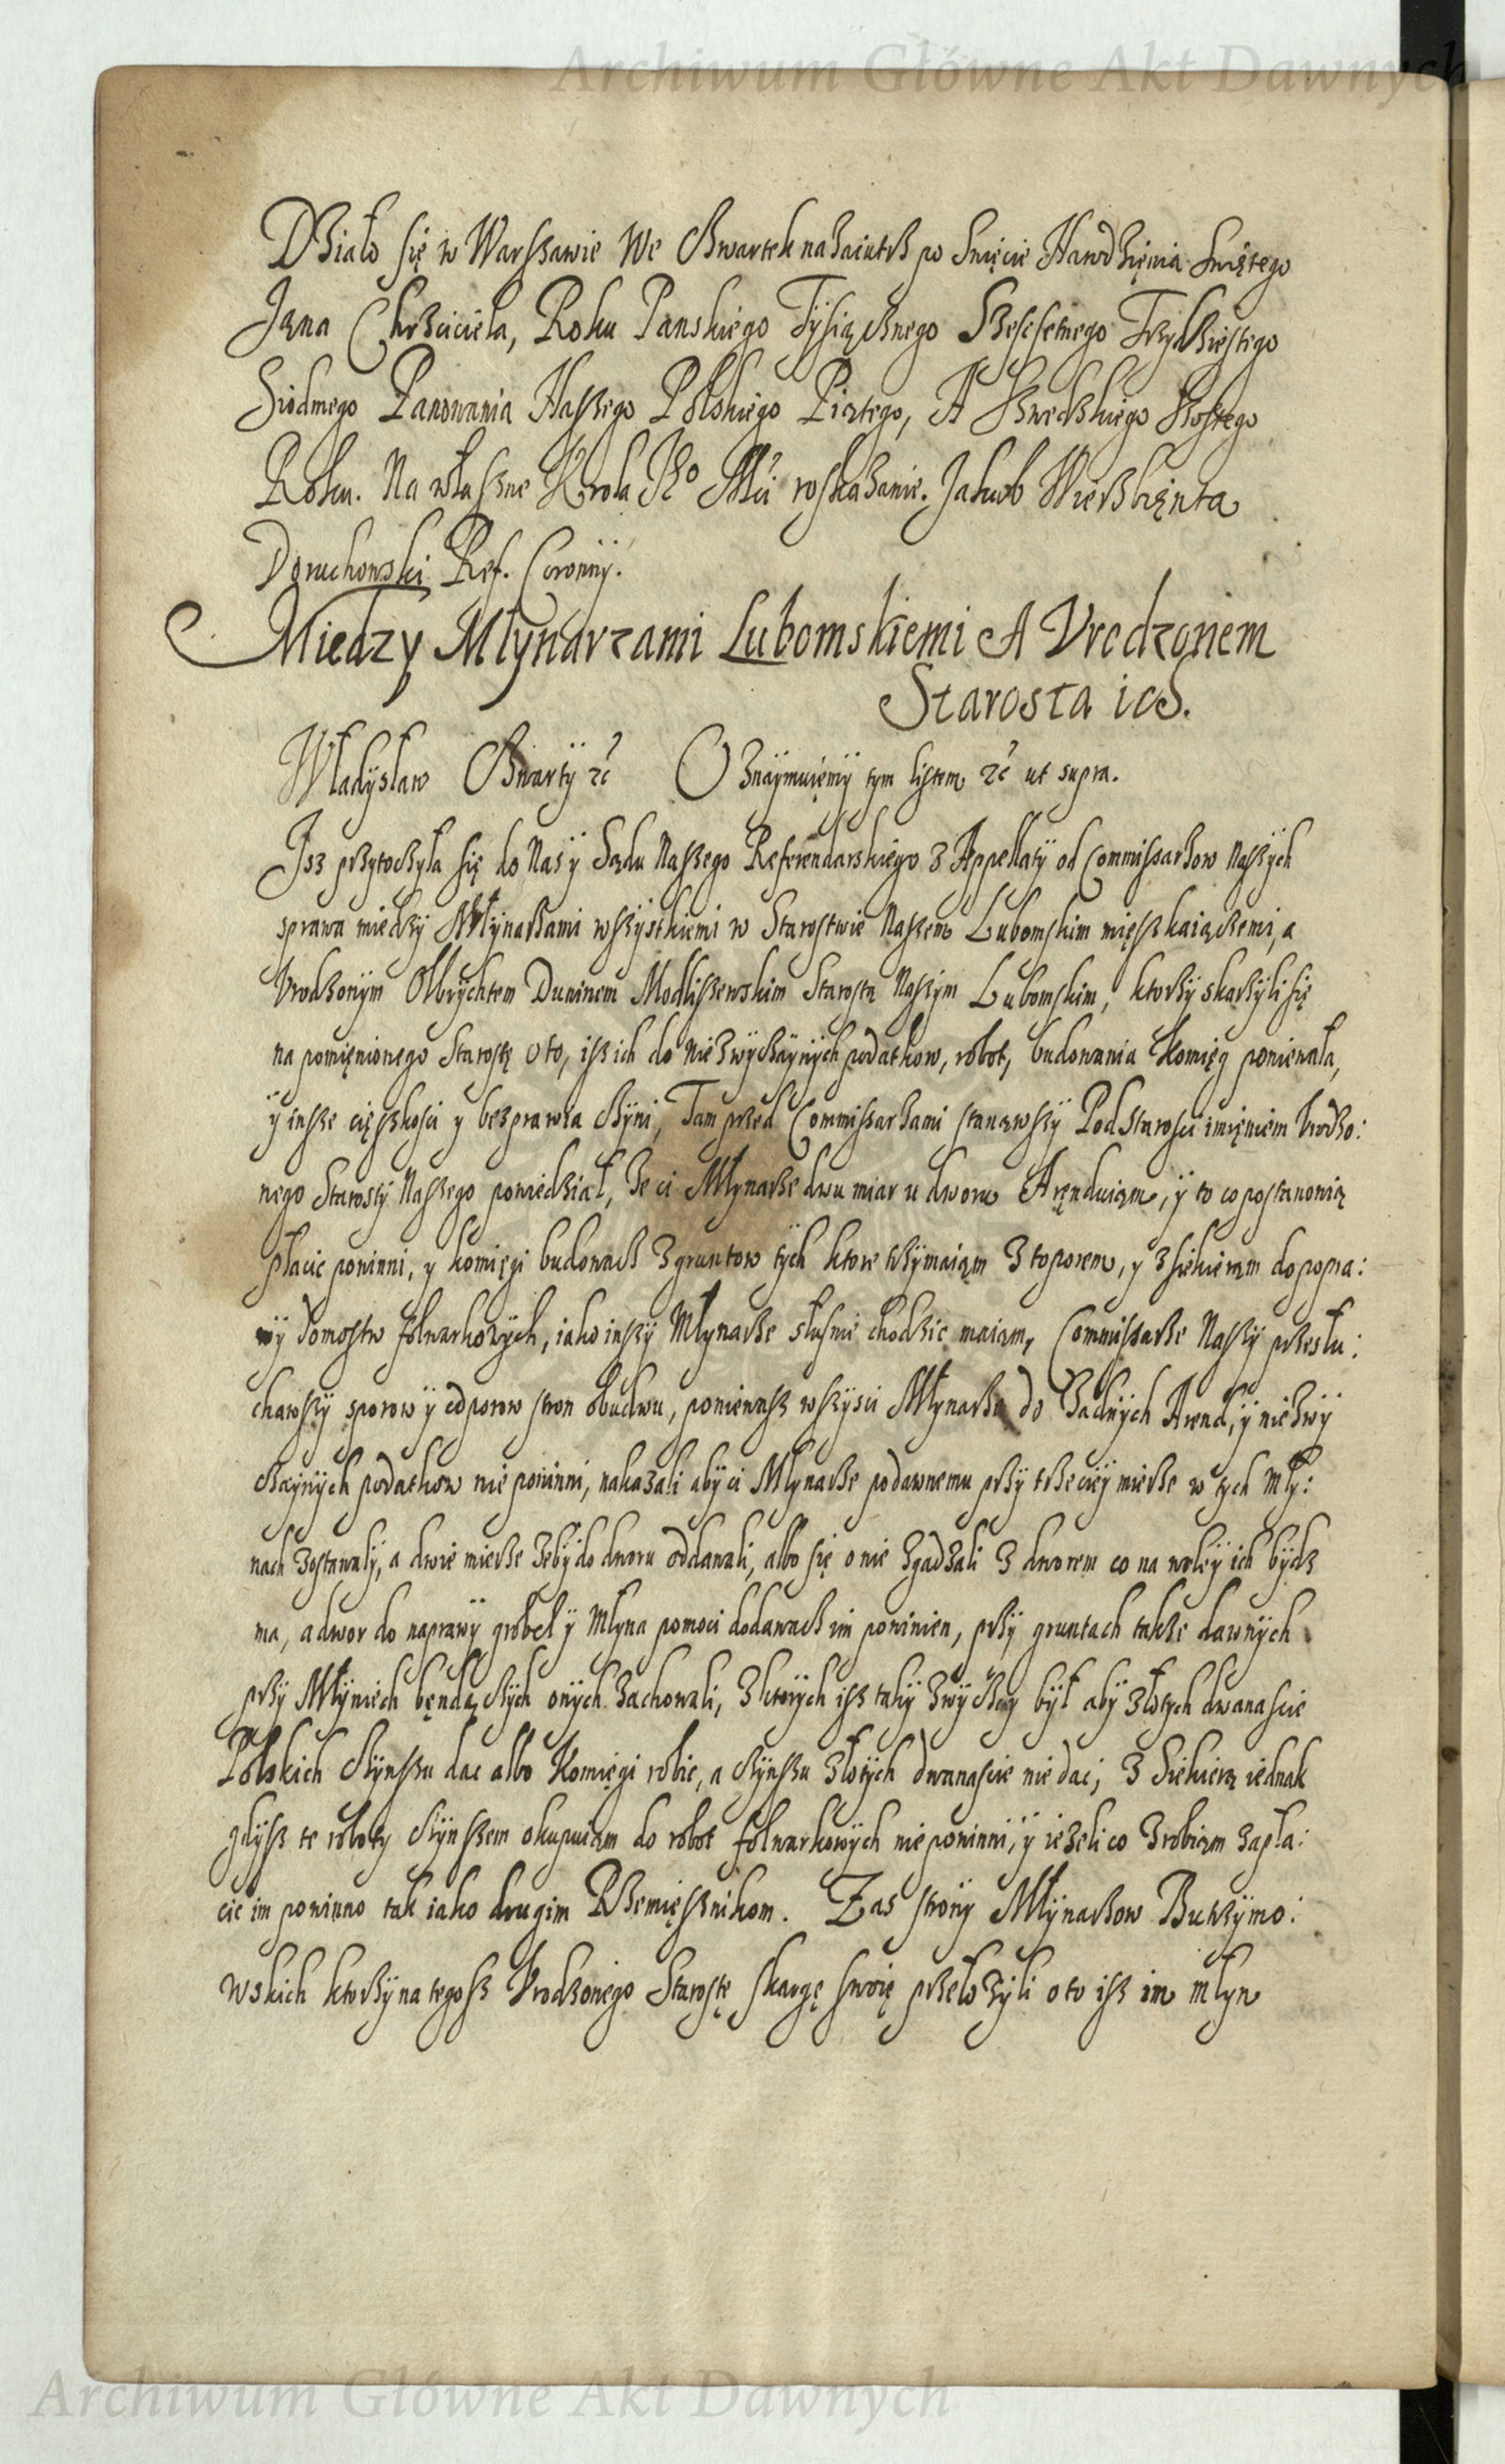 Archiwum Główne Akt Dawnych
Działo się w Warszawie We Czwartek nazaiutrz po Swięcie Narodzięnia Swiętego
Jana Chrzciciela, Roku Panskiego Tysiącznego Szescsetnego Trzydziestego
Siodmego Panowania Naszego Polskiego Piątego, A Szwedzkiego Szostego
Roku. Na własne Krola Jo Mci roskazanie. Jakub Wierzbięnta
Doruchowski Ref. Coronny.
Miedzy Młynarzami Lubomskiemi A Vrodzonem
Starosta icd.
Władysław Czwarty &c Oznaymuięmy tym listem &c ut supra.
Isz przytoczyła się do Nas y Sądu Naszego Referendarskiego z Appellaty od Commissarzow Naszych
sprawa miedzy Młynarzami wszystkiemi w Starostwie Naszem Lubomskim mięszkaiączemi, a
Vrodzonym Olbrychtem Duninem Modliszewskim Starostą Naszym Lubomskim, ktorzy skarzyli się
na pomięnionego Starostę o to, isz ich do niezwyczaynych podatkow, robot, budowania Komięg poniewala,
y insze cięszkosci y bezprawia czyni, Tam przed Commissarzami stanąwszy PodStarosci imięniem Vrodzo:
nego Starosty Naszego powiedział, ze ci Młynarze dwu miar u dworu Aręnduiąm, y to co postanowią
płacic powinni, y komięgi budowacz z gruntow tych ktore trzymaiąm z toporem, y z siekierąm do popra:
wy domostw folwarkowych, iako inszy Młynarze słusnie chodzic maiąm, Commissarze Naszy przesłu:
chawszy sporow y odporow stron obudwu, poniewasz wszysci Młynarze do zadnych Arend, y niezwy
czaynych podatkow nie powinni, nakazali aby ci Młynarze podawnemu przy trzeciey mierze w tych Mły:
nach zostawali, a dwie mierze zeby do dworu oddawali, albo się o nie zgadzali z dworem co na woley ich bydz
ma, a dwor do naprawy grobel y Młyna pomoci dodawacz im powinien, przy gruntach takze dawnych
przy Młyniech będączych onych zachowali, z ktorych isz taky zwyczay był aby złotych dwanascie
Polskich Czynszu dac albo Komięgi robic, a Czynszu złotych dwanascie nie dac, z Siekierą iednak
gdysz te roboty Czynszem okupuiąm do robot folwarkowych nie powinni, y iezeli co zrobiąm zapła:
cic im powinno tak iako drugim Rzemięsznikom. Zas strony Młynarzow Butrzymo:
wskich ktorzy na tegosz Vrodzonego Starostę skargę swoię przełozyli o to isz im młyn
Archiwum Główne Akt Dawnych